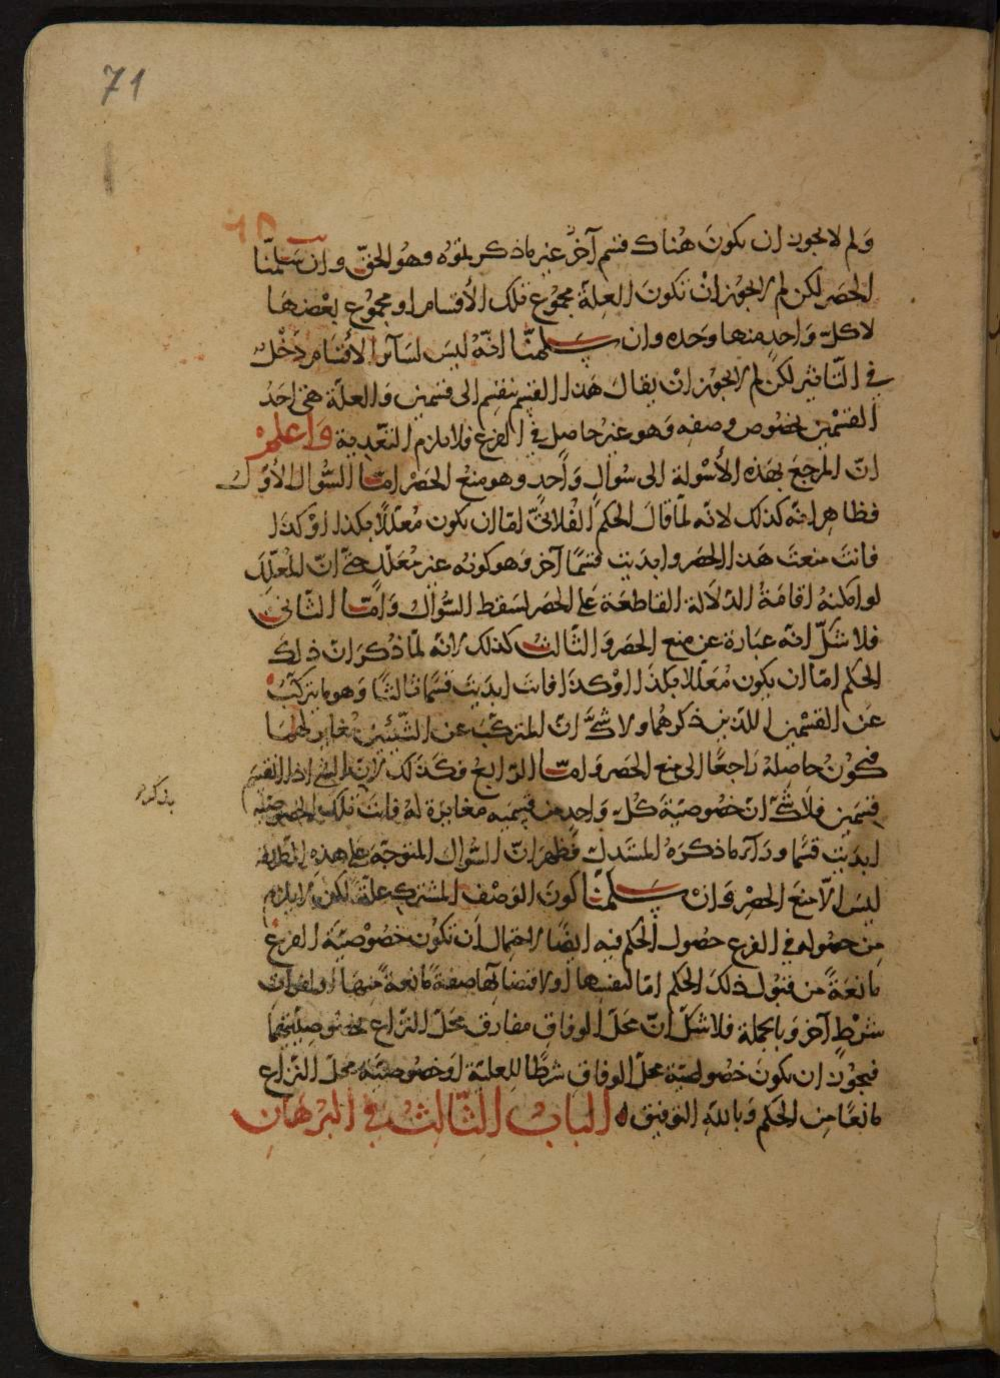 71
ولم لا يجوز ان يكون هناك قسم آخر غير ما ذكرتموه وهو الحق وان سلمنا
الحصر لكن لم لا يجوز ان تكون العلة مجموع تلك الأقسام او مجموع بعضها
لا كل واحد منها وحده وان سلمنا انه ليس لسائر الأقسام دخل
في التاثير لكن لم لا يجوز ان يقال هذا القسم ينقسم الى قسمين والعلة هي احد
القسمين بخصوص وصفه وهو غير حاصل في الفرع فلا يلزم التعدية واعلم
ان المرجع بهذه الأسولة الى سؤال واحد وهو منع الحصر اما السؤال الأول
فظاهر انه كذلك لانه لما قال الحكم الفلاني اما ان يكون معللا بكذا او كذا
فانت منعت هذا الحصر وابديت قسما آخر وهو كونه غير معلل حتى ان المعلل
لو امكنه اقامة الدلالة القاطعة على الحصر لسقط السؤال واما الثاني
فلا شك انه عبارة عن منع الحصر والثالث كذلك لانه لما ذكر ان ذلك
الحكم اما ان يكون معللا بكذا او كذا فانت ابديت قسما ثالثا وهو ما يتركب
عن القسمين اللذين ذكرهما ولا شك ان المتركب عن الشيئين مغاير لهما
فيكون حاصله راجعا الى منع الحصر واما الرابع فكذلك لان الشي اذا انقسم
قسمين فلا شك ان خصوصية كل واحد من قسيميه مغايرة له فانت بتلك الخصوصية
ابديت قسما وراء ما ذكره المستدل فظهر ان السؤال المتوجه على هذه الطريقة
ليس الا منع الحصر وان سلمنا كون الوصف المشترك علة لكن لا يلزم
من حصوله في الفرع حصول الحكم فيه ايضا لاحتمال ان تكون خصوصية الفرع
مانعة من قبول ذلك الحكم اما لنفسها او لاقتضائها صفة مانعة منها او لفوات
شرط آخر وبالجملة فلا شك ان محل الوفاق مفارق محل النزاع بخصوصيتهما
فيجوز ان يكون خصوصية محل الوفاق شرطا للعلية او خصوصية محل النزاع
مانعا من الحكم وبالله التوفيق ه الباب الثالث في البرهان